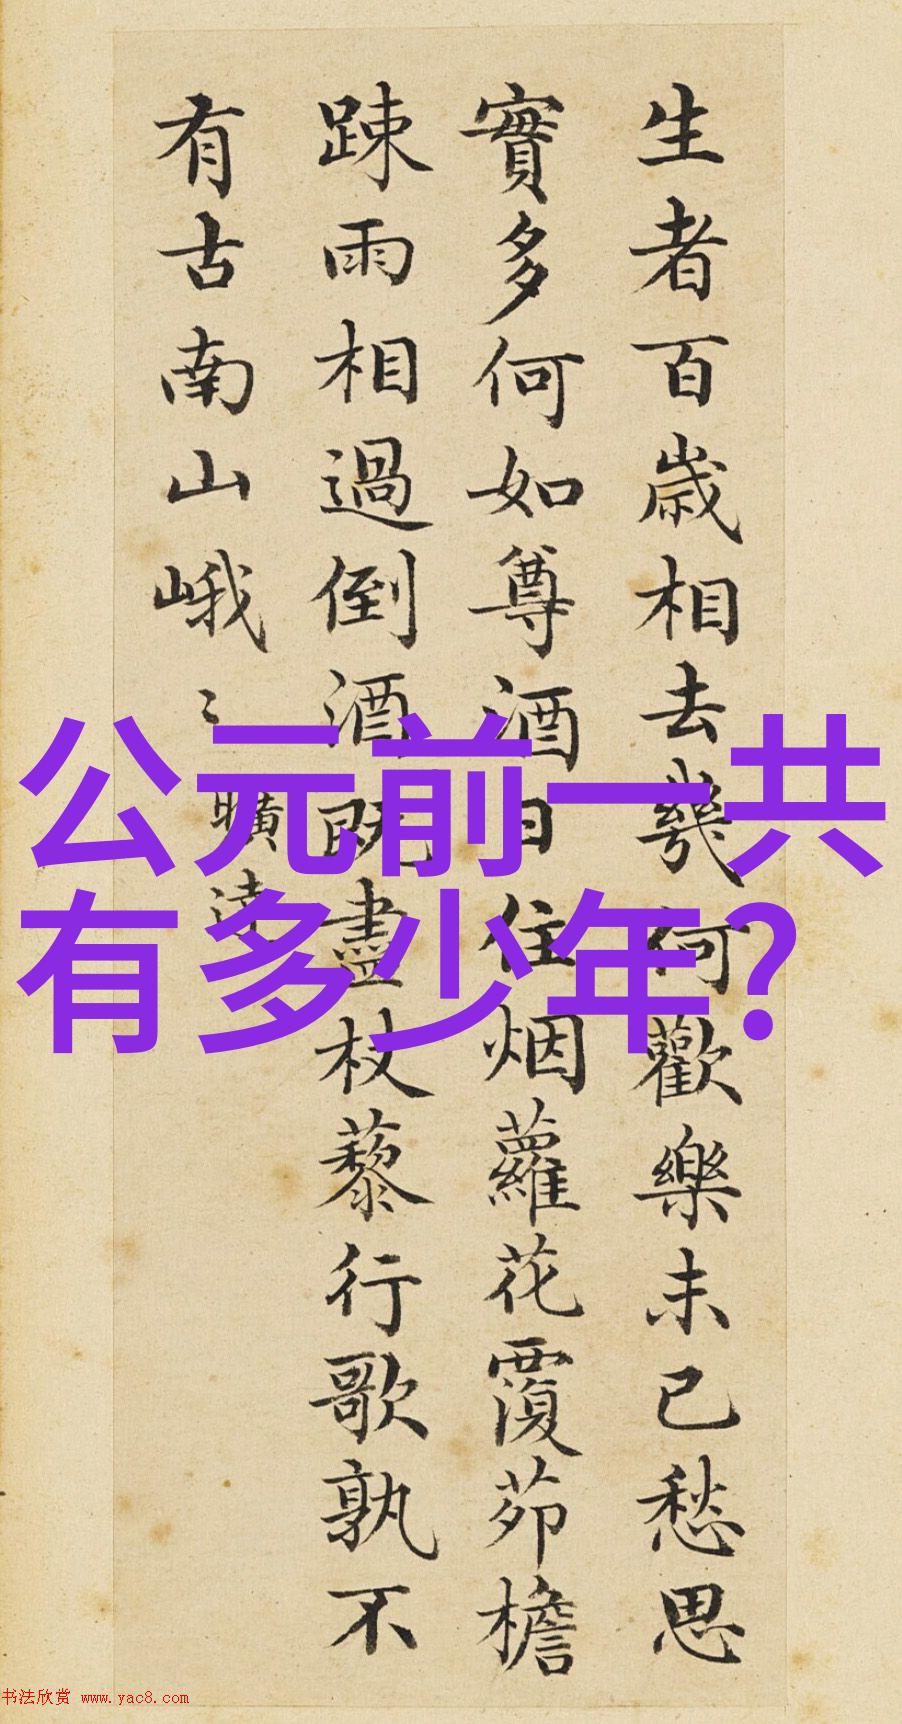 生者百歲相去幾何歡樂未已愁思
實多何如尊酒日住烟蘿花覆茆檐
踈雨相過倒酒既盡杖藜行歌孰不
有古南山峨〻曠達
公元前一共
有多少年?
书法欣赏 www.yac8.com